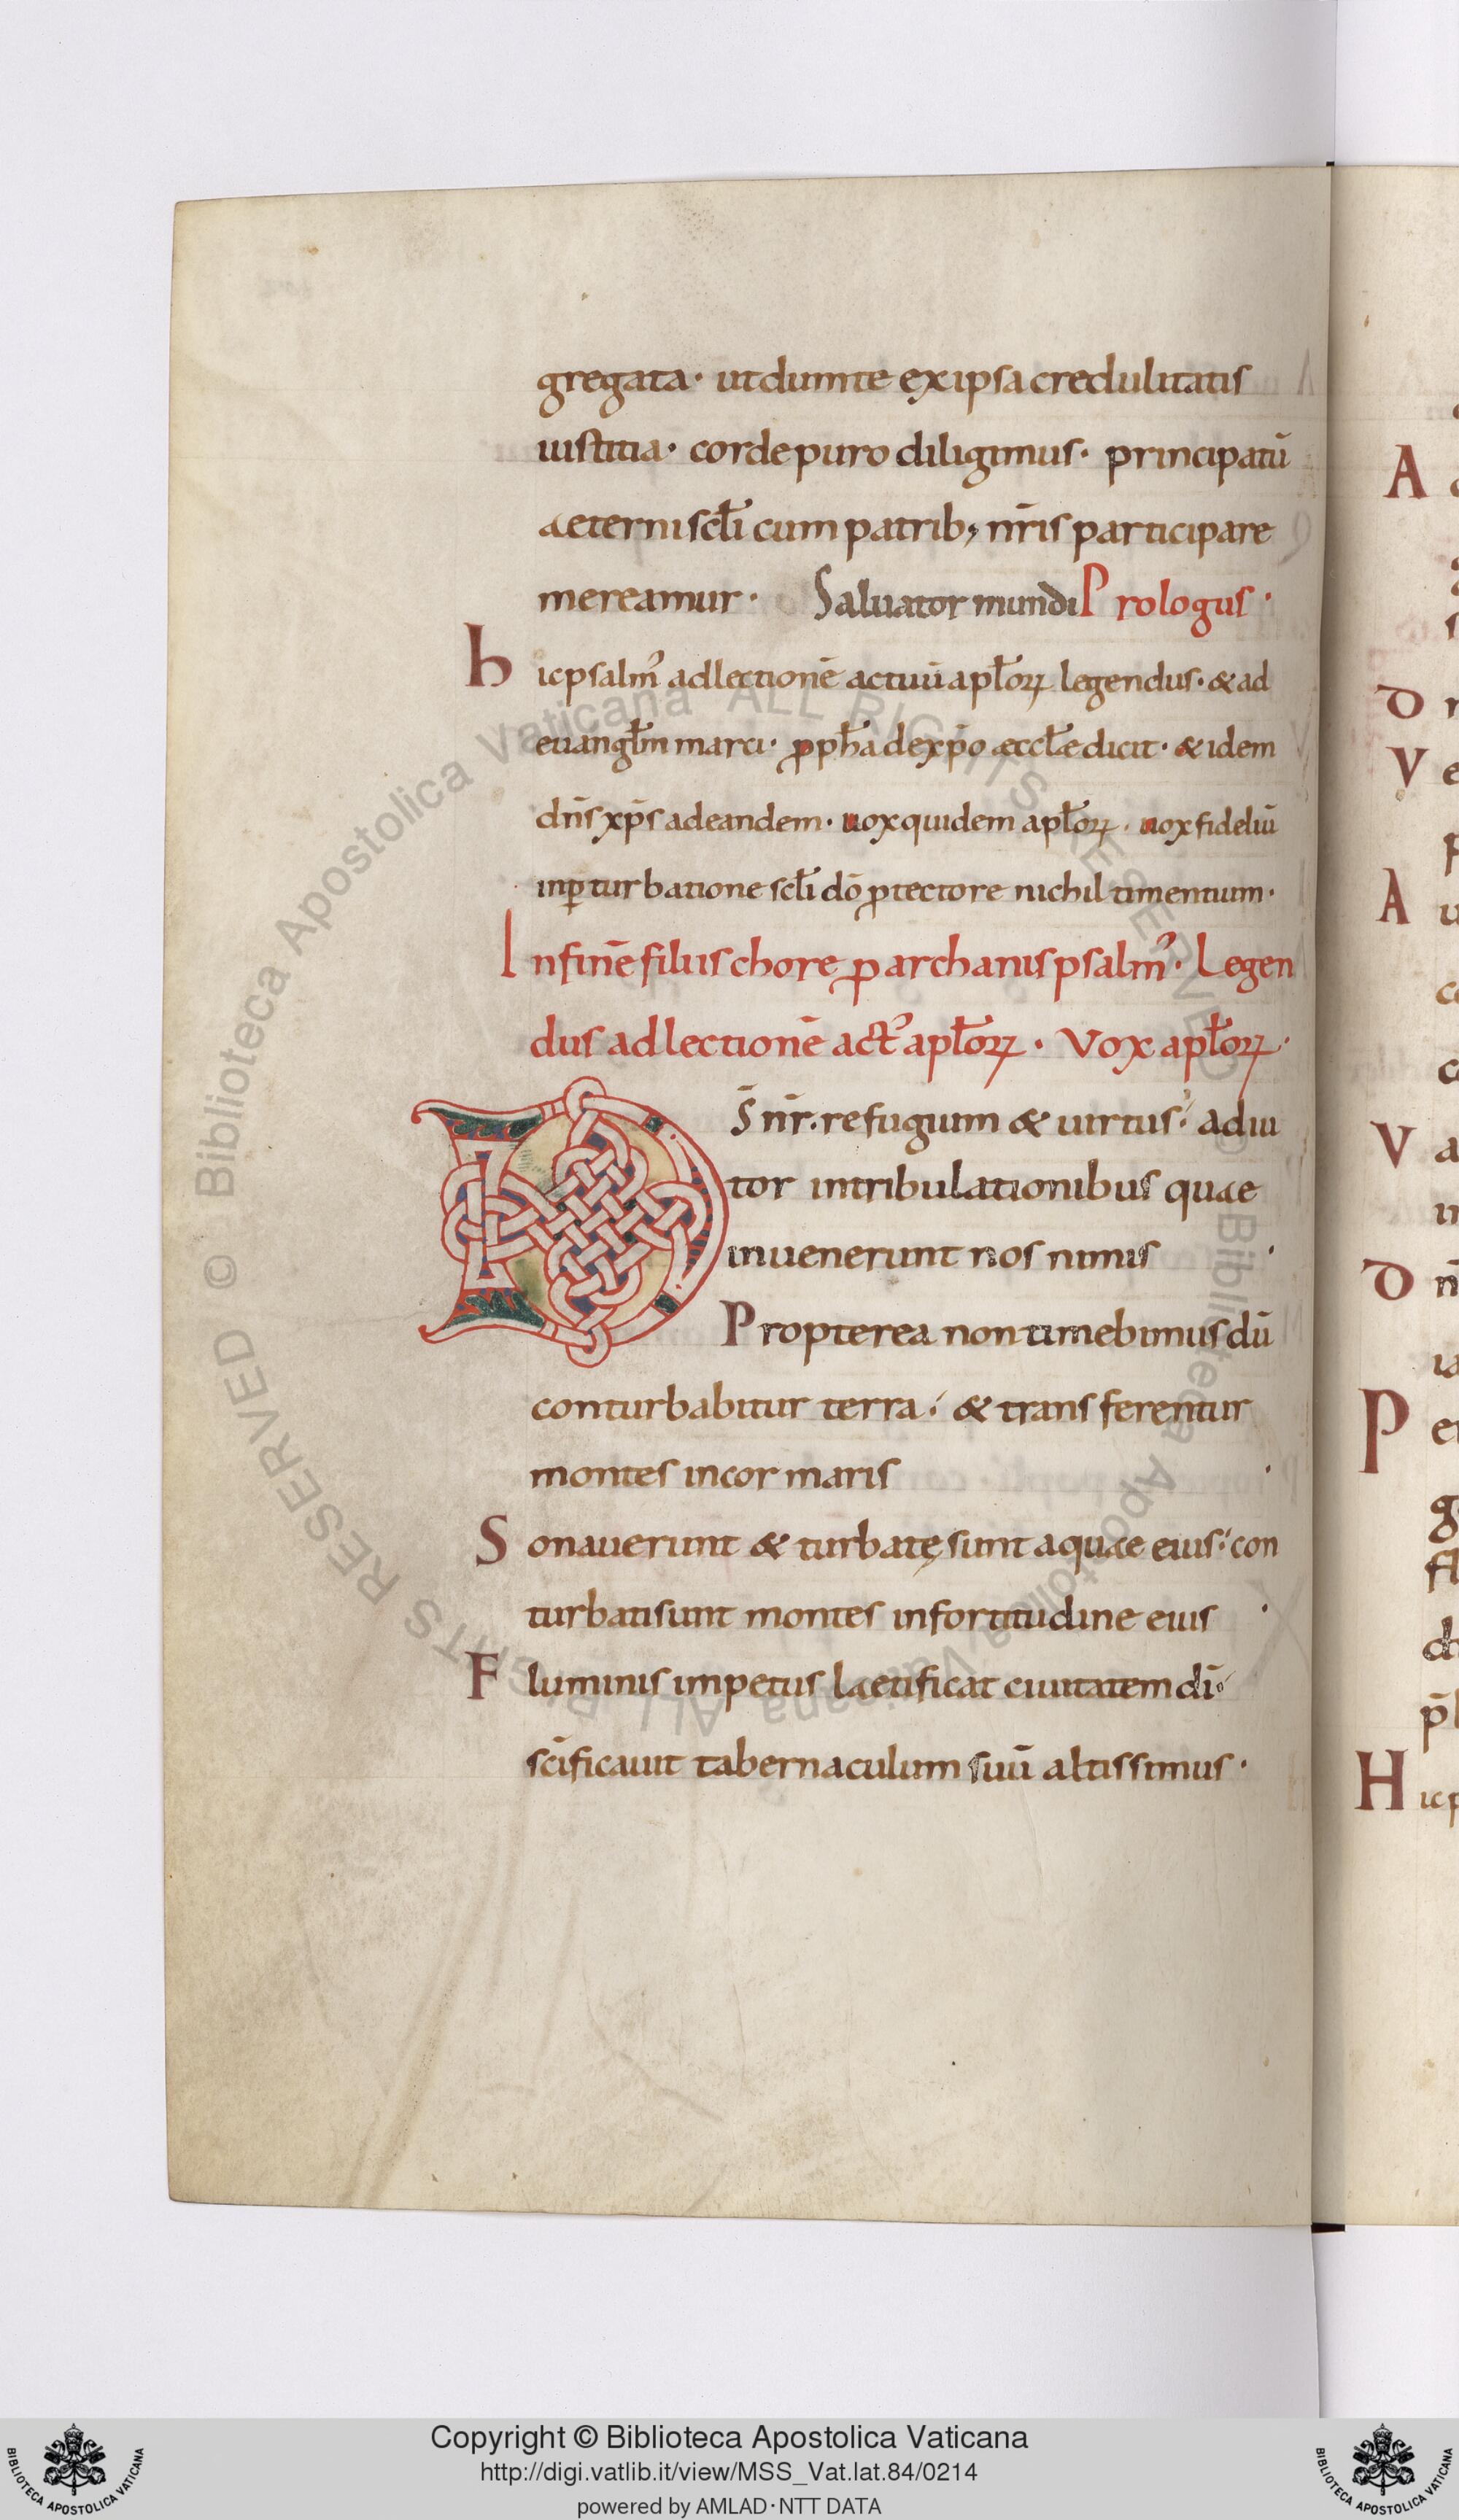 gregata· ut dum te ex ipsa credulitatis
iustitia· corde puro diligimus· principatū
aeterni scl̄i cum patrib; nr̄is participare
mereamur· Saluator mundi Prologus·
hic psalm᷒ ad lectionē actuū apl̄oꝝ legendus· & ad
euangl̄m marci· ꝓph̄a de xp̄o æccl̄æ dicit· & idem
dn̄s xp̄s ad eandem· uox quidem apl̄oꝝ· uox fideliū
in ꝑturbatione scl̄i dō ꝓtectore nichil timentium·
In finē filiis chore ꝓ archanis psalm᷒· Legen
dus ad lectionē act᷒ apl̄oꝝ· Vox apl̄oꝝ·
DS̄ nr̄. refugium & uirtus· adiu
tor in tribulationibus quae
inuenerunt nos nimis·
Propterea non timebimus dū
conturbabitur terra· & transferentur
montes in cor maris·
Sonauerunt & turbatę sunt aquae eius· con
turbati sunt montes in fortitudine eius·
Fluminis impetus laetificat ciuitatem dī·
sc̄ificauit tabernaculum suū altissimus·
A
D
V
A
V
D
P
H
Copyright © Biblioteca Apostolica Vaticana
http://digi.vatlib.it/view/MSS_Vat.lat.84/0214
powered by AMLAD·NTT DATA
BIBLIOTECA APOSTOLICA VATICANA
BIBLIOTECA APOSTOLICA VATICANA
© Biblioteca Apostolica Vaticana ALL RIGHTS RESERVED © Biblioteca Apostolica Vaticana ALL RIGHTS RESERVED